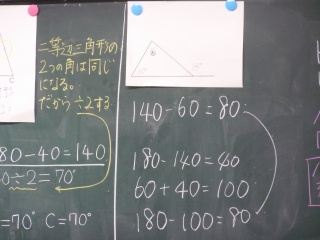 二等辺三角形の
2つの角は同じ
になる。
だから÷2する
80-40=140
0÷2=70°
=70° C=70°
140-60=80
180-140=40
60+40=100
180-100=80